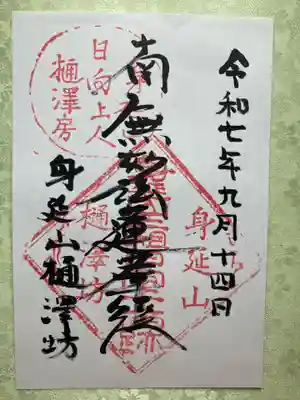 令和七年九月十四日
身延山
南無妙法蓮華経
日向上人
樋澤房
樋澤坊
身延山樋澤坊